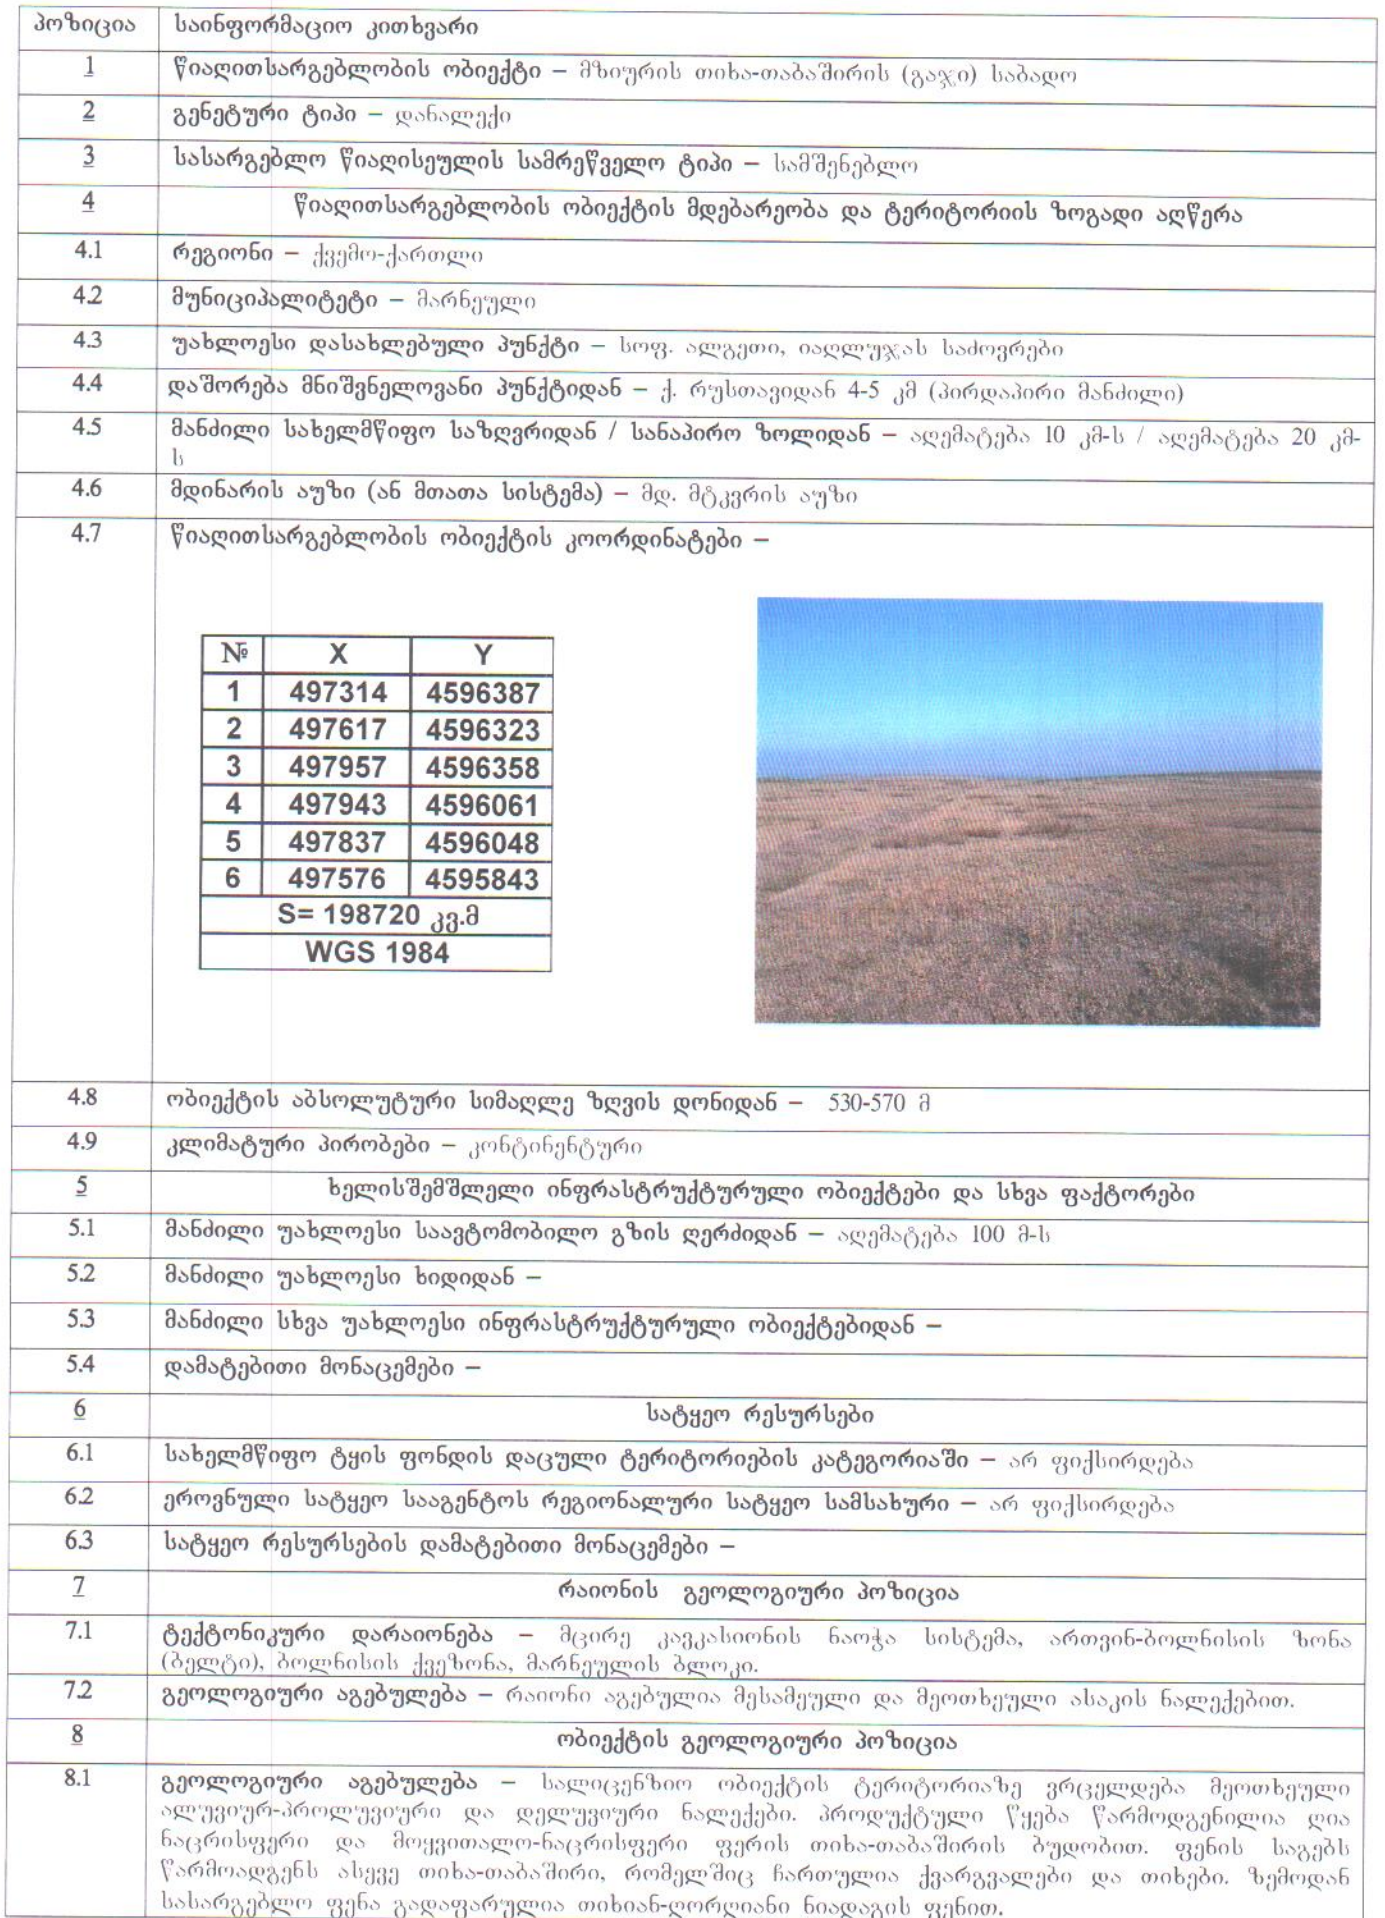 პოზიცია საინფორმაციო კითხვარი
1 წიაღითსარგებლობის ობიექტი – მზიურის თიხა-თაბაშირის (გაჯი) საბადო
2 გენეტური ტიპი – დანალექი
3 სასარგებლო წიაღისეულის სამრეწველო ტიპი – სამშენებლო
4 წიაღითსარგებლობის ობიექტის მდებარეობა და ტერიტორიის ზოგადი აღწერა
4.1 რეგიონი – ქვემო-ქართლი
4.2 მუნიციპალიტეტი – მარნეული
4.3 უახლოესი დასახლებული პუნქტი – სოფ. ალგეთი, იაღლუჯას საძოვრები
4.4 დაშორება მნიშვნელოვანი პუნქტიდან – ქ. რუსთავიდან 4-5 კმ (პირდაპირი მანძილი)
4.5 მანძილი სახელმწიფო საზღვრიდან / სანაპირო ზოლიდან – აღემატება 10 კმ-ს / აღემატება 20 კმ-
ს
4.6 მდინარის აუზი (ან მთათა სისტემა) – მდ. მტკვრის აუზი
4.7 წიაღითსარგებლობის ობიექტის კოორდინატები –
№ X Y
1 497314 4596387
2 497617 4596323
3 497957 4596358
4 497943 4596061
5 497837 4596048
6 497576 4595843
S= 198720 კვ.მ
WGS 1984
4.8 ობიექტის აბსოლუტური სიმაღლე ზღვის დონიდან – 530-570 მ
4.9 კლიმატური პირობები – კონტინენტური
5 ხელისშემშლელი ინფრასტრუქტურული ობიექტები და სხვა ფაქტორები
5.1 მანძილი უახლოესი საავტომობილო გზის ღერძიდან – აღემატება 100 მ-ს
5.2 მანძილი უახლოესი ხიდიდან –
5.3 მანძილი სხვა უახლოესი ინფრასტრუქტურული ობიექტებიდან –
5.4 დამატებითი მონაცემები –
6 სატყეო რესურსები
6.1 სახელმწიფო ტყის ფონდის დაცული ტერიტორიების კატეგორიაში – არ ფიქსირდება
6.2 ეროვნული სატყეო სააგენტოს რეგიონალური სატყეო სამსახური – არ ფიქსირდება
6.3 სატყეო რესურსების დამატებითი მონაცემები –
7 რაიონის გეოლოგიური პოზიცია
7.1 ტექტონიკური დარაიონება – მცირე კავკასიონის ნაოჭა სისტემა, ართვინ-ბოლნისის ზონა
(ბელტი), ბოლნისის ქვეზონა, მარნეულის ბლოკი.
7.2 გეოლოგიური აგებულება – რაიონი აგებულია მესამეული და მეოთხეული ასაკის ნალექებით.
8 ობიექტის გეოლოგიური პოზიცია
8.1 გეოლოგიური აგებულება – სალიცენზიო ობიექტის ტერიტორიაზე ვრცელდება მეოთხეული
ალუვიურ-პროლუვიური და დელუვიური ნალექები. პროდუქტული წყება წარმოდგენილია ღია
ნაცრისფერი და მოყვითალო-ნაცრისფერი ფერის თიხა-თაბაშირის ბუდობით. ფენის საგებს
წარმოადგენს ასევე თიხა-თაბაშირი, რომელშიც ჩართულია ქვარგვალები და თიხები. ზემოდან
სასარგებლო ფენა გადაფარულია თიხიან-ღორღიანი ნიადაგის ფენით.